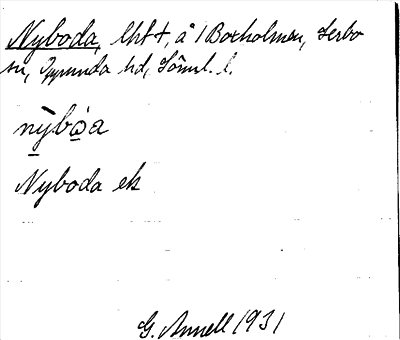 Nyboda, lht +, å 1 Boxholmen, Ierbo
sn, Öpunda hd, Söml. l.
nỳbȯ́a
Nyboda ek
G. Annell 1931